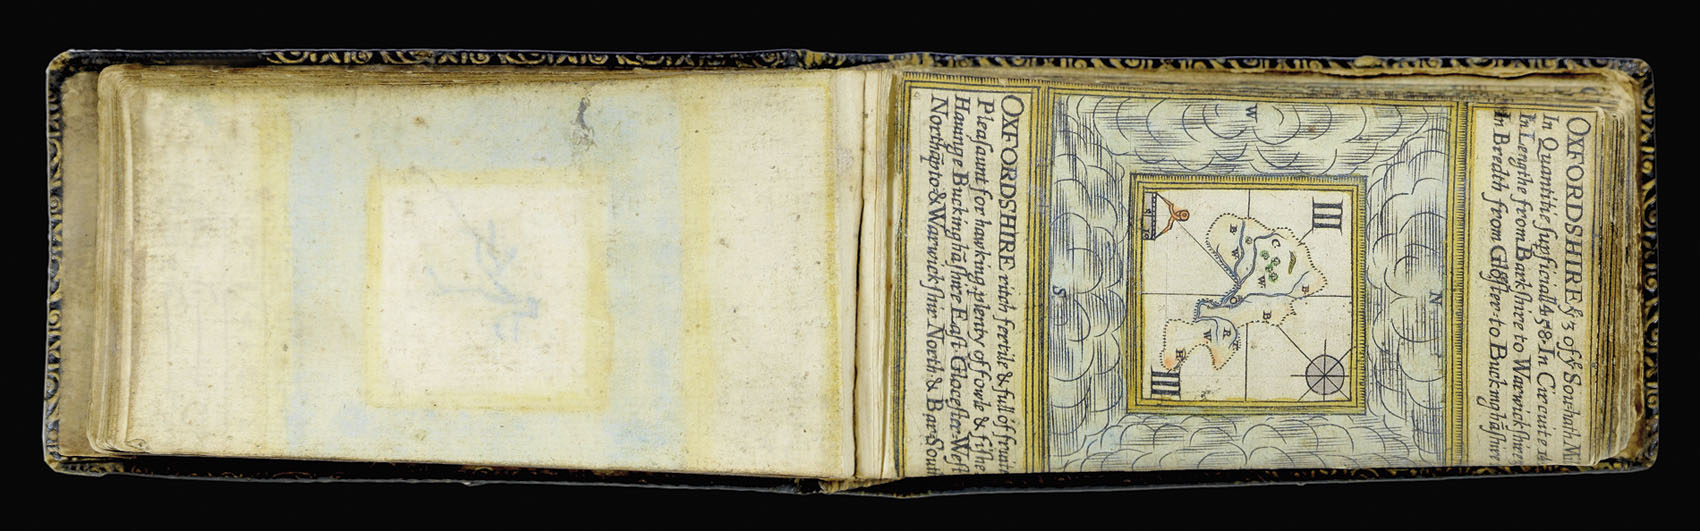 OXFORDSHIRE yͤ 3 of yͤ South hath M
In Quantitie ſupficiall 458. In Circuite 16
In Lengthe from Barkſhire to Warwickſhire
In Bredth from Gloſter-to Buckinghāſhire
N
W
III
III
C
B
W
W
B
B
O
R
W
H
S
OXFORDSHIRE ritch fertile & full of fruite
Pleaſaunt for hawking, plenty of fowle & fiſhe
Hauinge Buckinghāſhire Eaſt Gloceſter-Weſt
Northāpto & Warwickſhir North & Bar-Sout